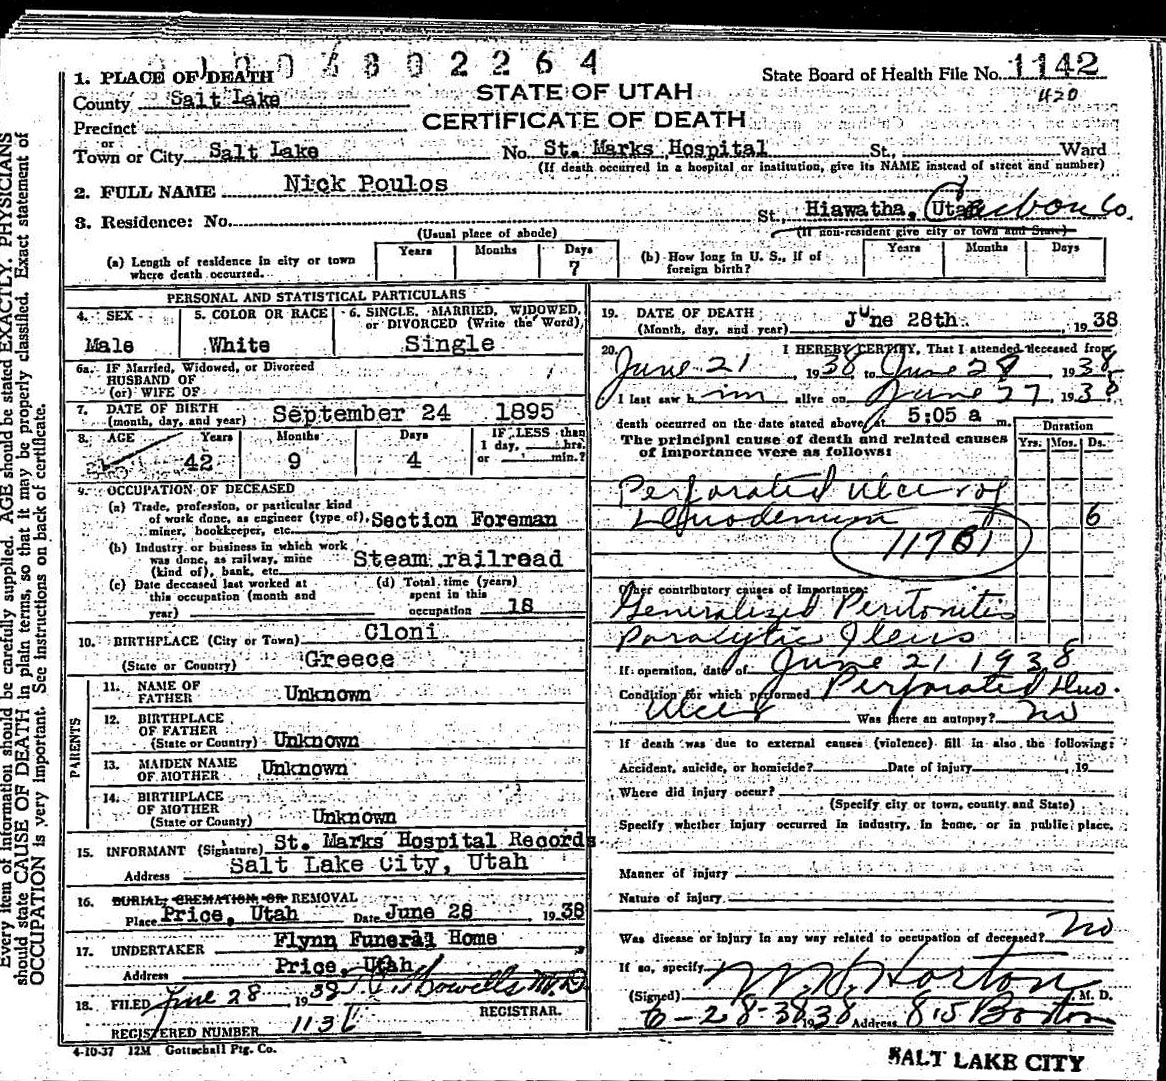 2 2 6 4
1. PLACE OF DEATH
State Board of Health File No. 1142
County Salt Lake
STATE OF UTAH
420
Precinct
CERTIFICATE OF DEATH
or
Town or City Salt Lake No. St. Marks Hospital St., Ward
(If death occurred in a hospital or institution, give its NAME instead of street and number)
2. FULL NAME Nick Poulos
3. Residence: No. St. Hiawatha, Utah Carbon Co.
(Usual place of abode) (If non-resident give city or town and State)
(a) Length of residence in city or town where death occurred. Years Months Days 7
(b) How long in U. S., if of foreign birth? Years Months Days
PERSONAL AND STATISTICAL PARTICULARS
4. SEX 5. COLOR OR RACE 6. SINGLE, MARRIED, WIDOWED, or DIVORCED (Write the Word)
Male White Single
6a. If Married, Widowed, or Divorced
HUSBAND OF
(or) WIFE OF
7. DATE OF BIRTH
(month, day, and year) September 24 1895
8. AGE Years Months Days IF LESS than
1 day, hrs.
or min.?
42 9 4
9. OCCUPATION OF DECEASED
(a) Trade, profession, or particular kind
of work done, as engineer (type of), Section Foreman
miner, bookkeeper, etc.
(b) Industry or business in which work
was done, as railway, mine Steam railroad
(kind of), bank, etc.
(c) Date deceased last worked at
this occupation (month and
year)
(d) Total time (years)
spent in this
occupation 18
10. BIRTHPLACE (City or Town) Cloni
(State or Country) Greece
PARENTS
11. NAME OF
FATHER Unknown
12. BIRTHPLACE
OF FATHER
(State or Country) Unknown
13. MAIDEN NAME
OF MOTHER Unknown
14. BIRTHPLACE
OF MOTHER
(State or Country) Unknown
15. INFORMANT (Signature) St. Marks Hospital Records
Address Salt Lake City, Utah
16. BURIAL, CREMATION, OR REMOVAL
Place Price, Utah Date June 28 1938
17. UNDERTAKER Flynn Funeral Home
Address Price, Utah
18. FILED June 28, 1938 Howells M.D.
REGISTRAR.
REGISTERED NUMBER 1136
4-10-37 12M Gottschall Ptg. Co.
19. DATE OF DEATH
(Month, day, and year) June 28th, 1938
20. I HEREBY CERTIFY, That I attended deceased from
June 21, 1938 to June 28, 1938
I last saw him alive on June 27, 1938
death occurred on the date stated above, at 5:05 a m.
The principal cause of death and related causes
of importance were as follows:
Duration
Yrs. Mos. Ds.
Perforated Ulcer of
Duodenum 6
Other contributory causes of importance:
Generalized Peritonitis
Paralytic Ileus
If operation, date of June 21 1938
Condition for which performed Perforated Duo.
Ulcer Was there an autopsy? no
If death was due to external causes (violence) fill in also the following:
Accident, suicide, or homicide? Date of injury , 19
Where did injury occur?
(Specify city or town, county and State)
Specify whether injury occurred in industry, in home, or in public place.
Manner of injury
Nature of injury
Was disease or injury in any way related to occupation of deceased? no
If so, specify
(Signed) Horton, M. D.
6-28-38 1938 Address 815 Boston
SALT LAKE CITY
Every item of information should be carefully supplied. AGE should be stated EXACTLY. PHYSICIANS
should state CAUSE OF DEATH in plain terms, so that it may be properly classified. Exact statement of
OCCUPATION is very important. See instructions on back of certificate.